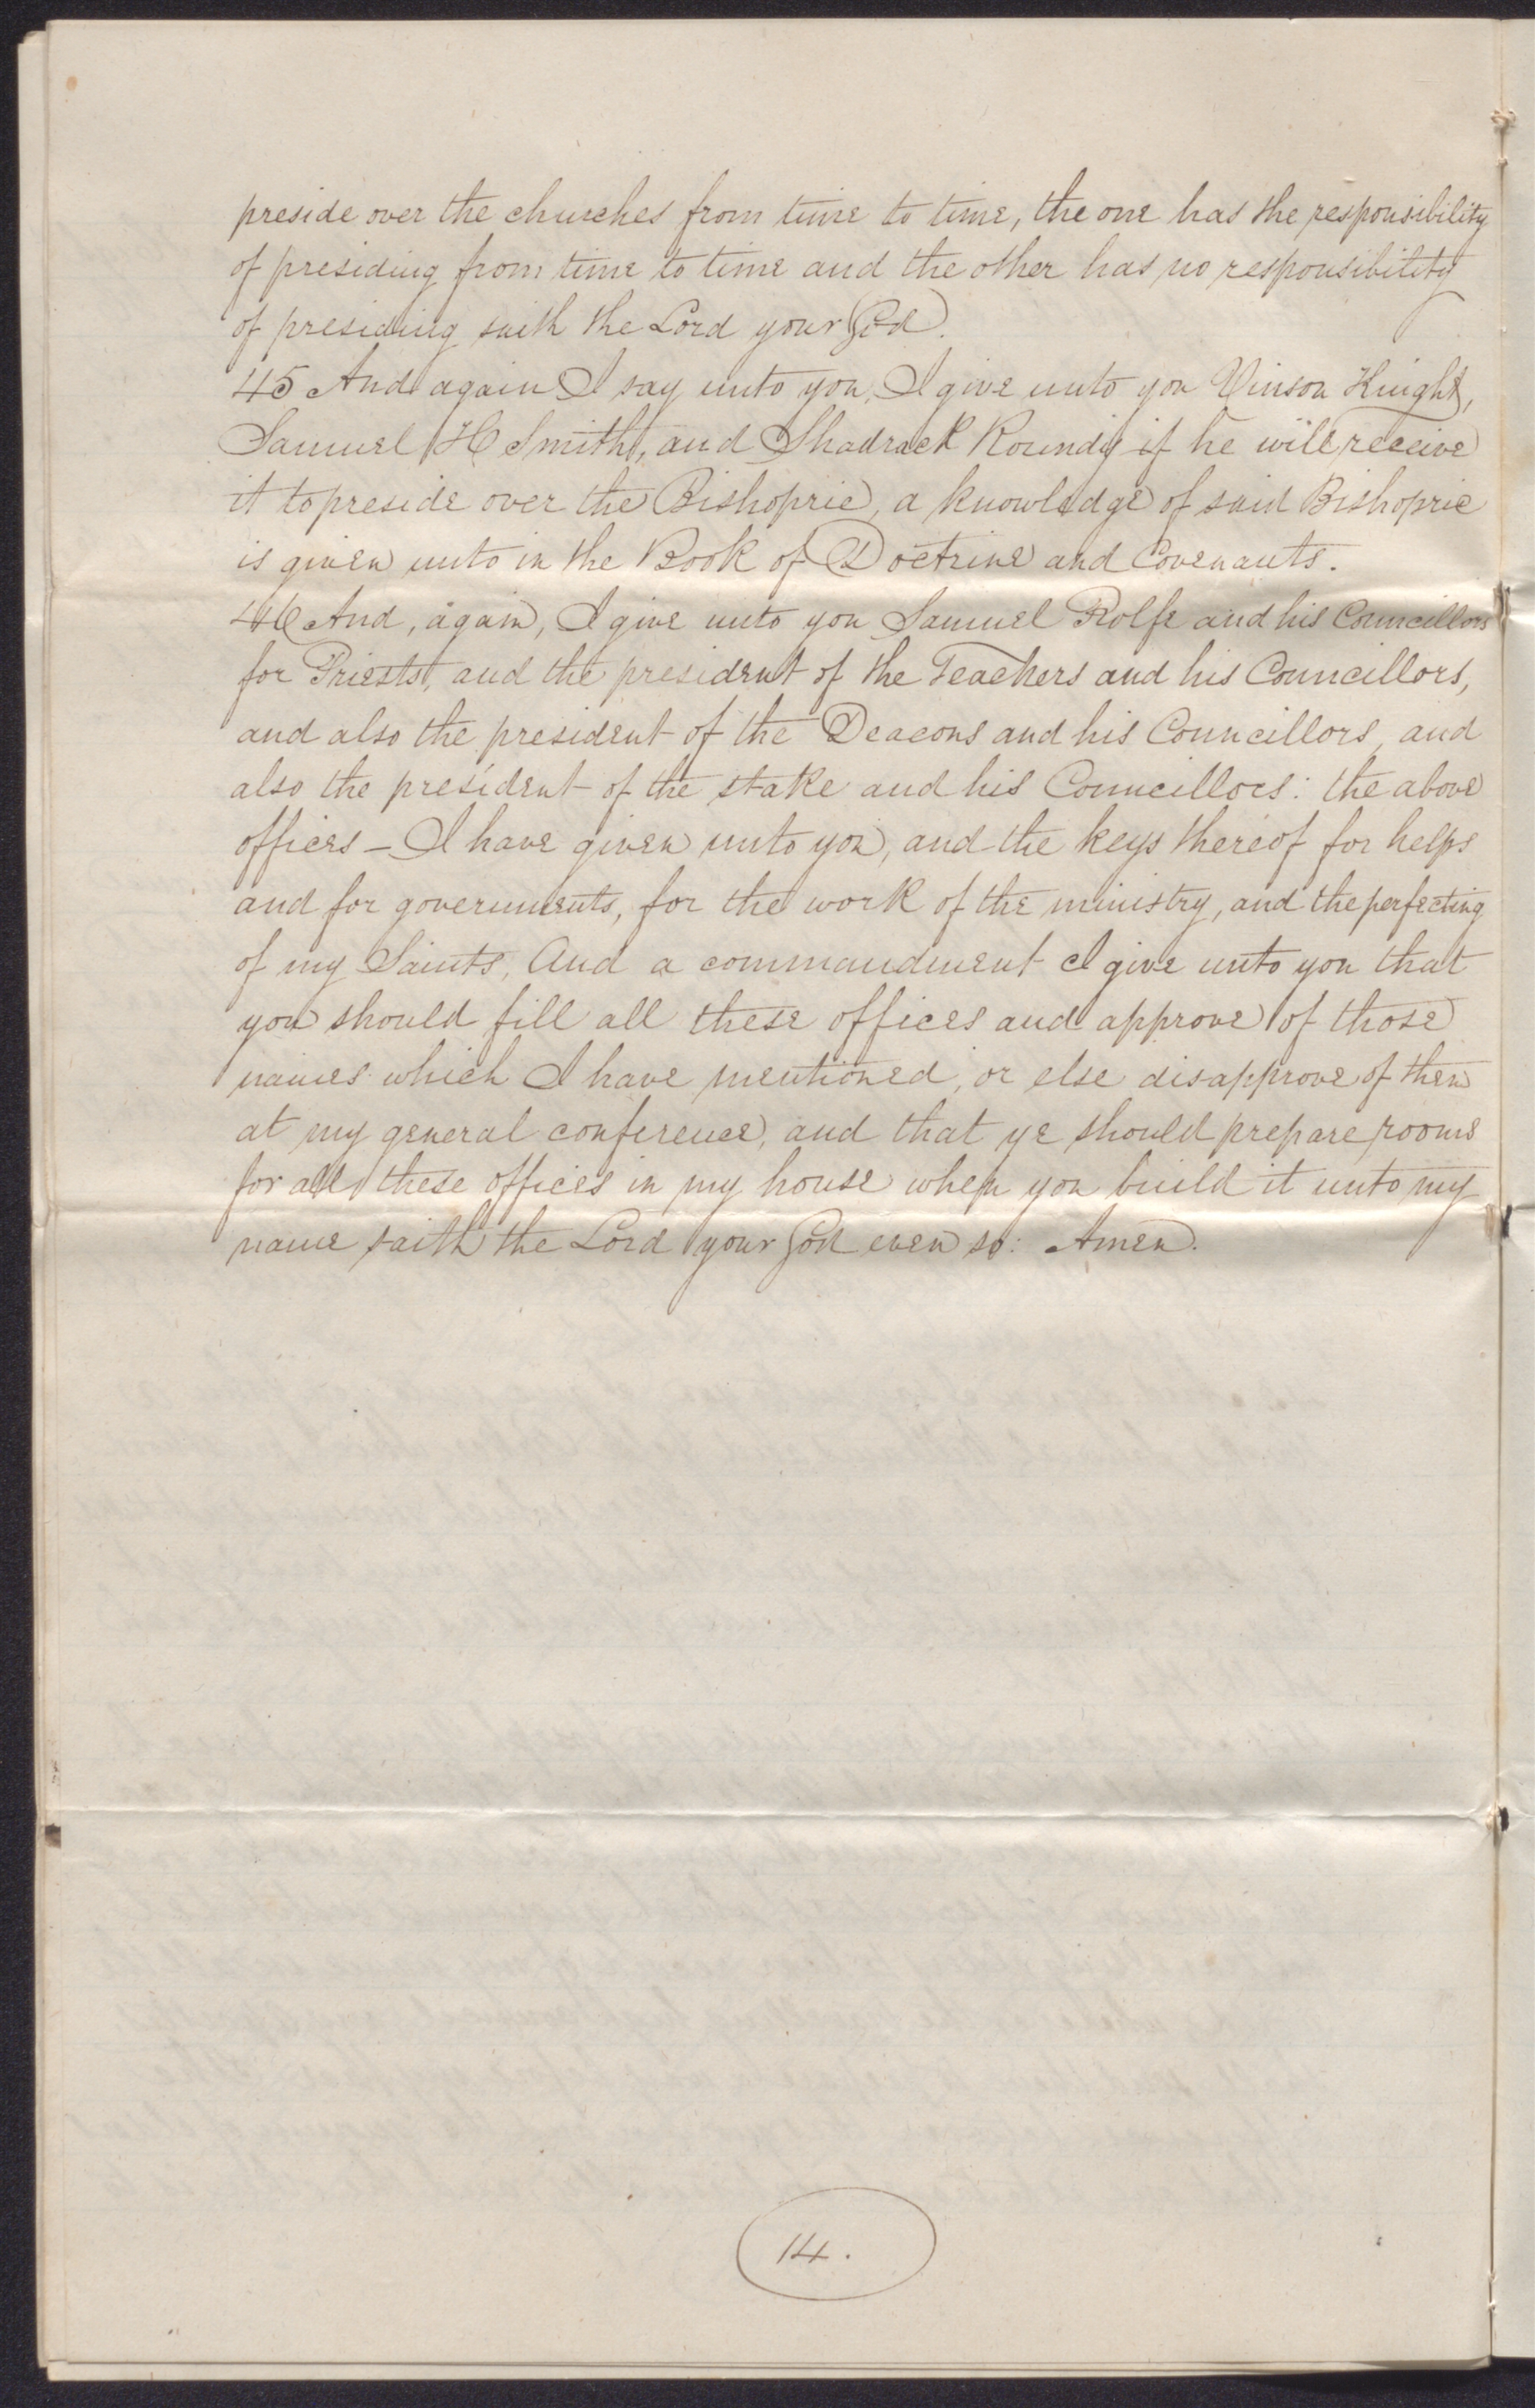 preside over the churches from time to time, the one has the responsibility
of presiding from time to time and the other has no responsibility
of presiding saith the Lord your God.
45 And again I say unto you, I give unto you Vinson Knight,
Samuel H Smith, and Shadrack Roundy if he will receive
it to preside over the Bishopric, a knowledge of said Bishopric
is given unto in the Book of Doctrine and Covenants.
46 And, again, I give unto you Samuel Rolfe and his Councillors
for Priests, and the president of the Teachers and his Councillors,
and also the president of the Deacons and his Councillors, and
also the president of the stake and his Councillors: the above
offices – I have given unto you, and the keys thereof for helps
and for governments, for the work of the ministry, and the perfecting
of my Saints, And a commandment I give unto you that
you should fill all these offices and approve of those
names which I have mentioned, or else disapprove of them
at my general conference, and that ye should prepare rooms
for all these offices in my house when you build it unto my
name saith the Lord your God even so: Amen.
14.